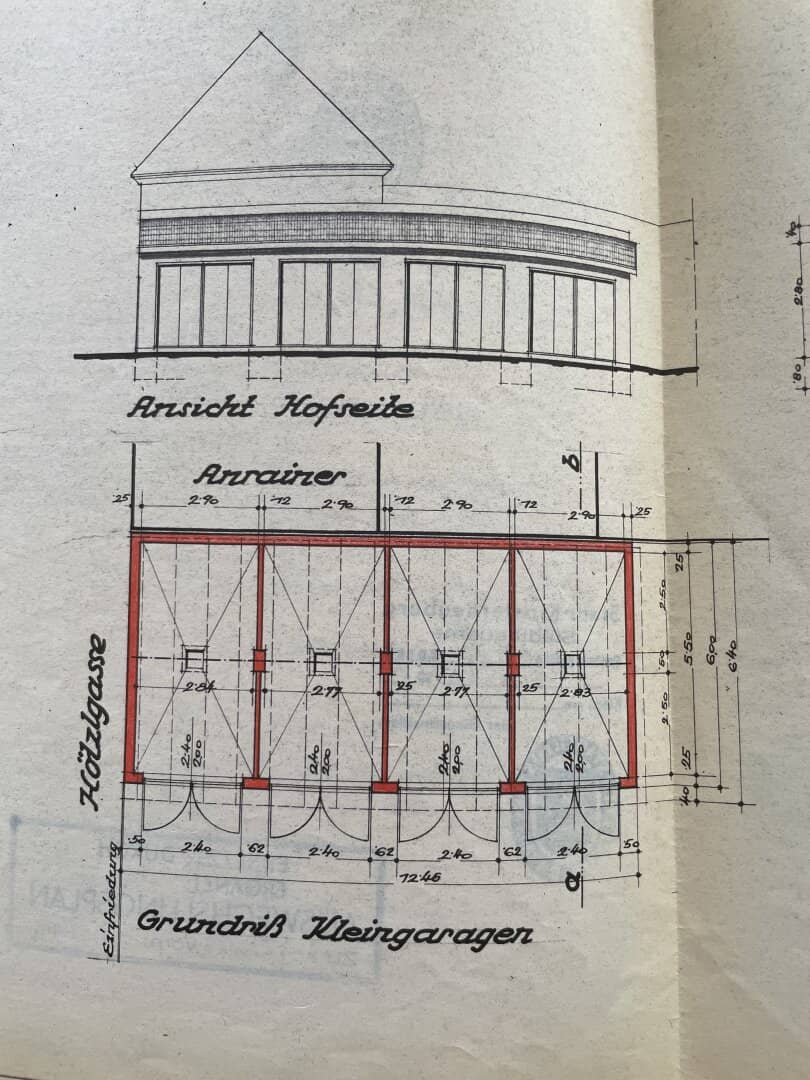 ·40
2·80
·80
Ansicht Hofseite
Anrainer
b
25 2·90 ·12 2·90 ·12 2·90 ·12 2·90 25
25
2·50
·50
5·50
6·00
6·40
2·50
·25
·40
2·84 2·77 25 2·77 25 2·83
2·40 2·40 2·40 2·40
200 200 200 200
Hölzlgasse
·50 2·40 ·62 2·40 ·62 2·40 ·62 2·40 ·50
12·46
a
Einfriedung
Grundriß Kleingaragen